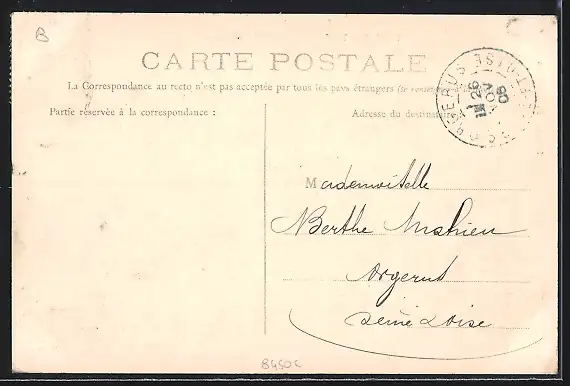 B
CARTE POSTALE
La Correspondance au recto n'est pas acceptée par tous les pays étrangers (se renseigner
Partie réservée à la correspondance :
Adresse du destinataire
26
NOV
06
Mademoiselle
Berthe Mahieu
Seine & Oise